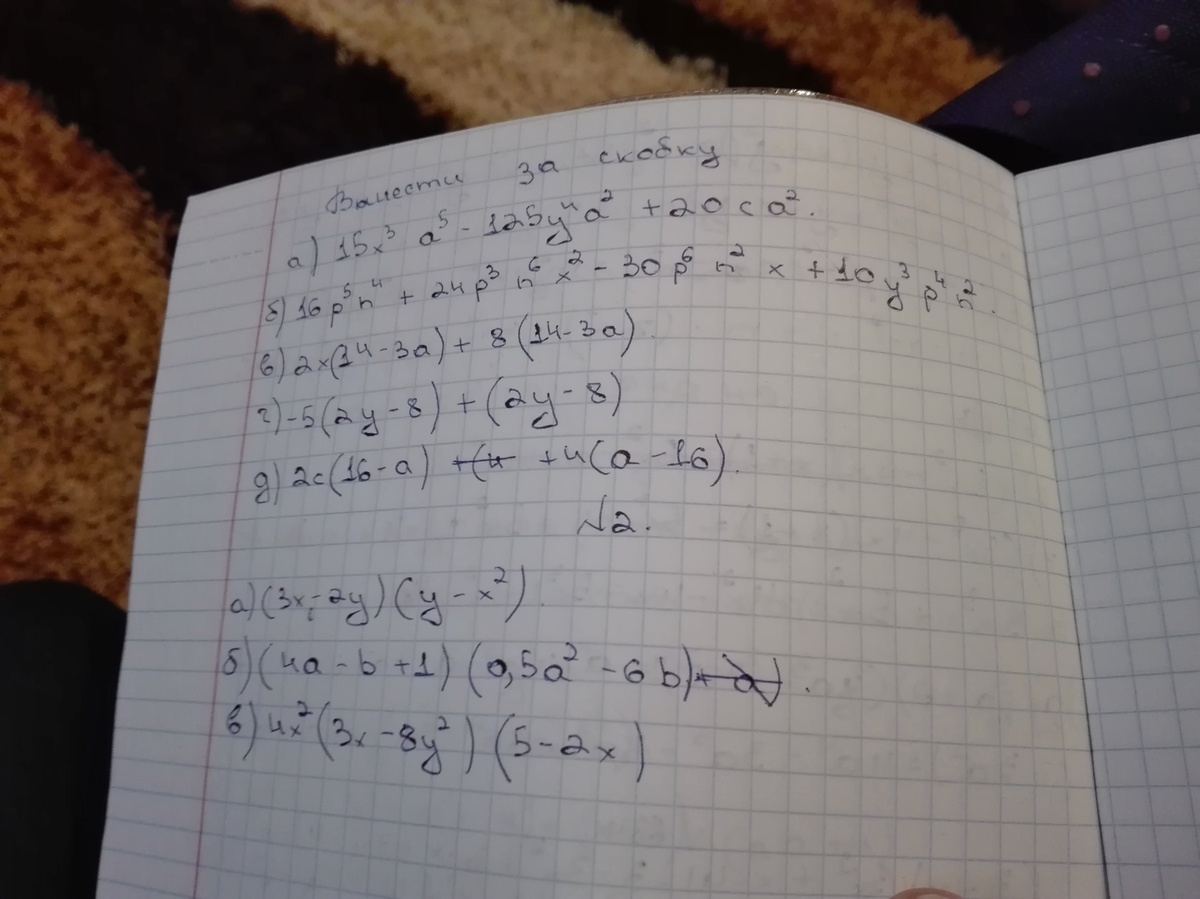 Вынести за скобку
а) 15x³ a⁵ - 125y⁴a² + 20 c a².
б) 16p⁵n⁴ + 24p³ n⁶ x² - 30 p⁶ n² x + 10y³ p⁴n².
в) 2x(14 - 3a) + 8 (14 - 3a).
г) -5(2y - 8) + (2y - 8)
д) 2c(16 - a) +4(a - 16).
№2.
а) (3x - 2y) (y - x²).
б) (4a - b + 1) (0,5a² - 6b).
в) 4x² (3x - 8y²) (5 - 2x)